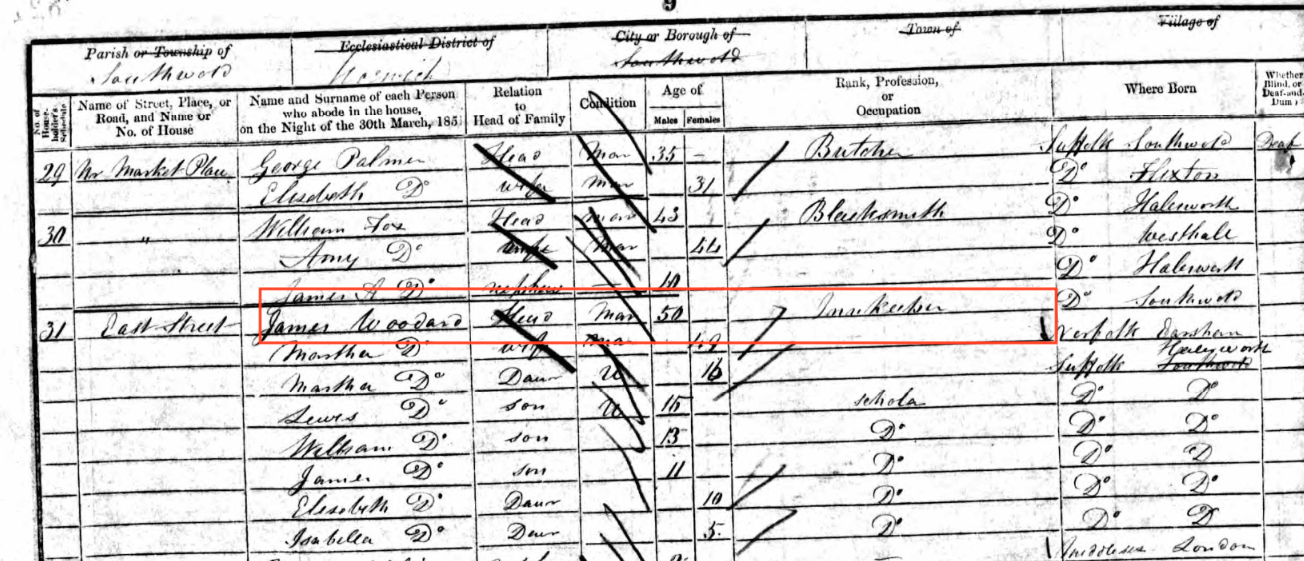 9
Parish or Township of Ecclesiastical District of City or Borough of Town of Village of
Southwold Norwich Southwold
No. of Householder's Schedule Name of Street, Place, or Road, and Name or No. of House Name and Surname of each Person who abode in the house, on the Night of the 30th March, 185 Relation to Head of Family Condition Age of Males Females Rank, Profession, or Occupation Where Born Whether Blind, or Deaf-and-Dumb
29 Nr Market Place George Palmer Head Mar 35 – Butcher Suffolk Southwold Deaf
Elisebeth Do wife Mar 31 Do Flixton
30 " William Fox Head Mar 43 Blacksmith Do Halesworth
" Amy Do wife Mar 44 Do Westhall
" James A Do nephew – 10 Do Haleswort
31 East Street James Woodard Head Mar 50 Innkeeper Do Southwold
Martha Do wife Mar 49 Norfolk
Martha Do Daur U 16 Suffolk Halesworth Southwold
Lewis Do son U 15 schola Do Do
William Do son 13 Do Do Do
James Do son 11 Do Do D
Elesebeth Do Daur 10 Do Do Do
Isabella Do Daur 5 Do Do D
Middlesex London